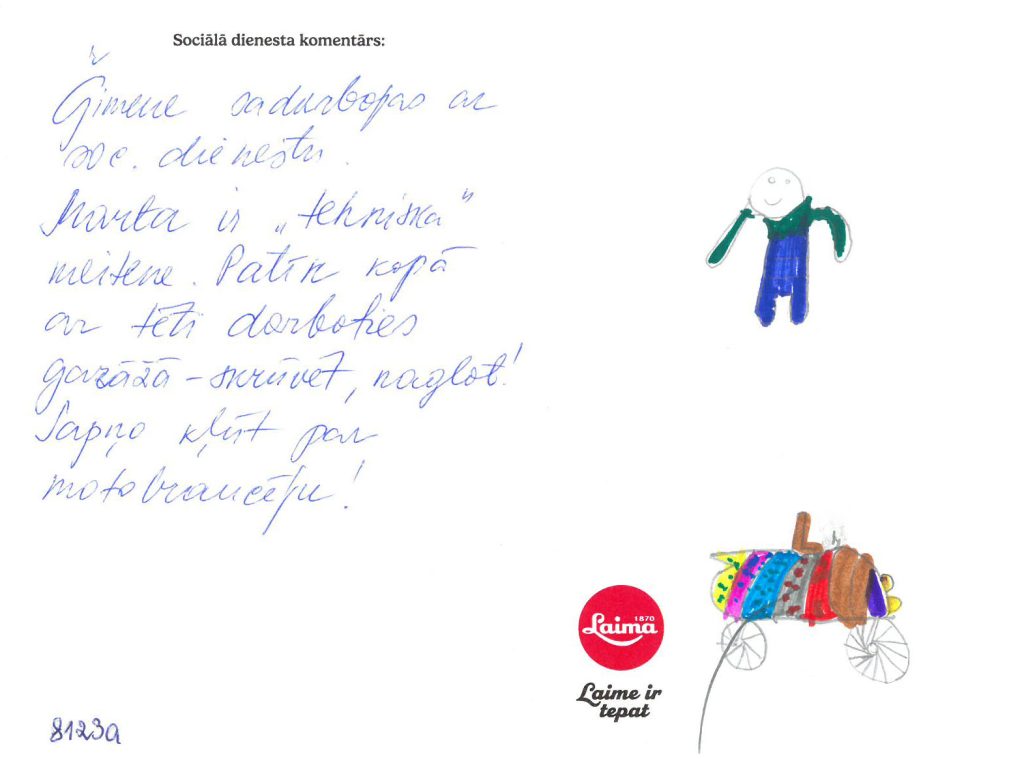 Sociālā dienesta komentārs:
Ģimene sadarbojas ar
soc. dienestu.
Marta ir „tehniska"
meitene. Patīk kopā
ar tēti darboties
garāžā – skrūvēt, naglot!
Sapņo kļūt par
motobraucēju!
1870
Laima
Laime ir
tepat
8123a